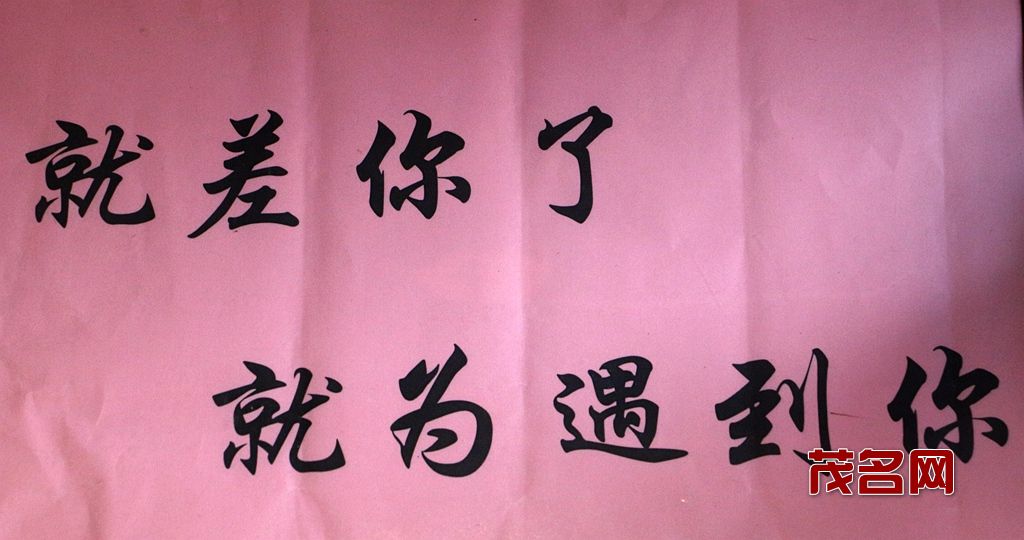 就差你了
就为遇到你
茂名网